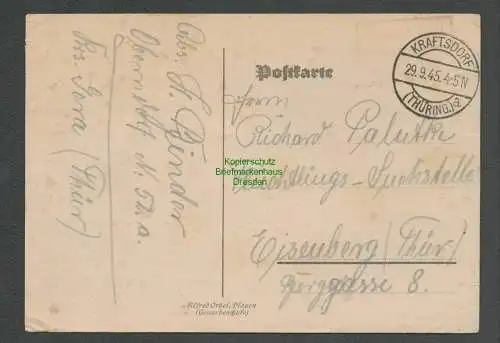 Abs. H. Binder
Oberndorf Nr. 52 a.
Krs. Gera (Thür)
Postkarte
KRAFTSDORF
29.9.45.4-5N
(THÜRING.)
Herrn
Richard Palutke
Flüchtlings-Suchstelle
Eisenberg (Thür)
Burggasse 8.
Kopierschutz
Briefmarkenhaus
Dresden
Alfred Ortel, Plauen